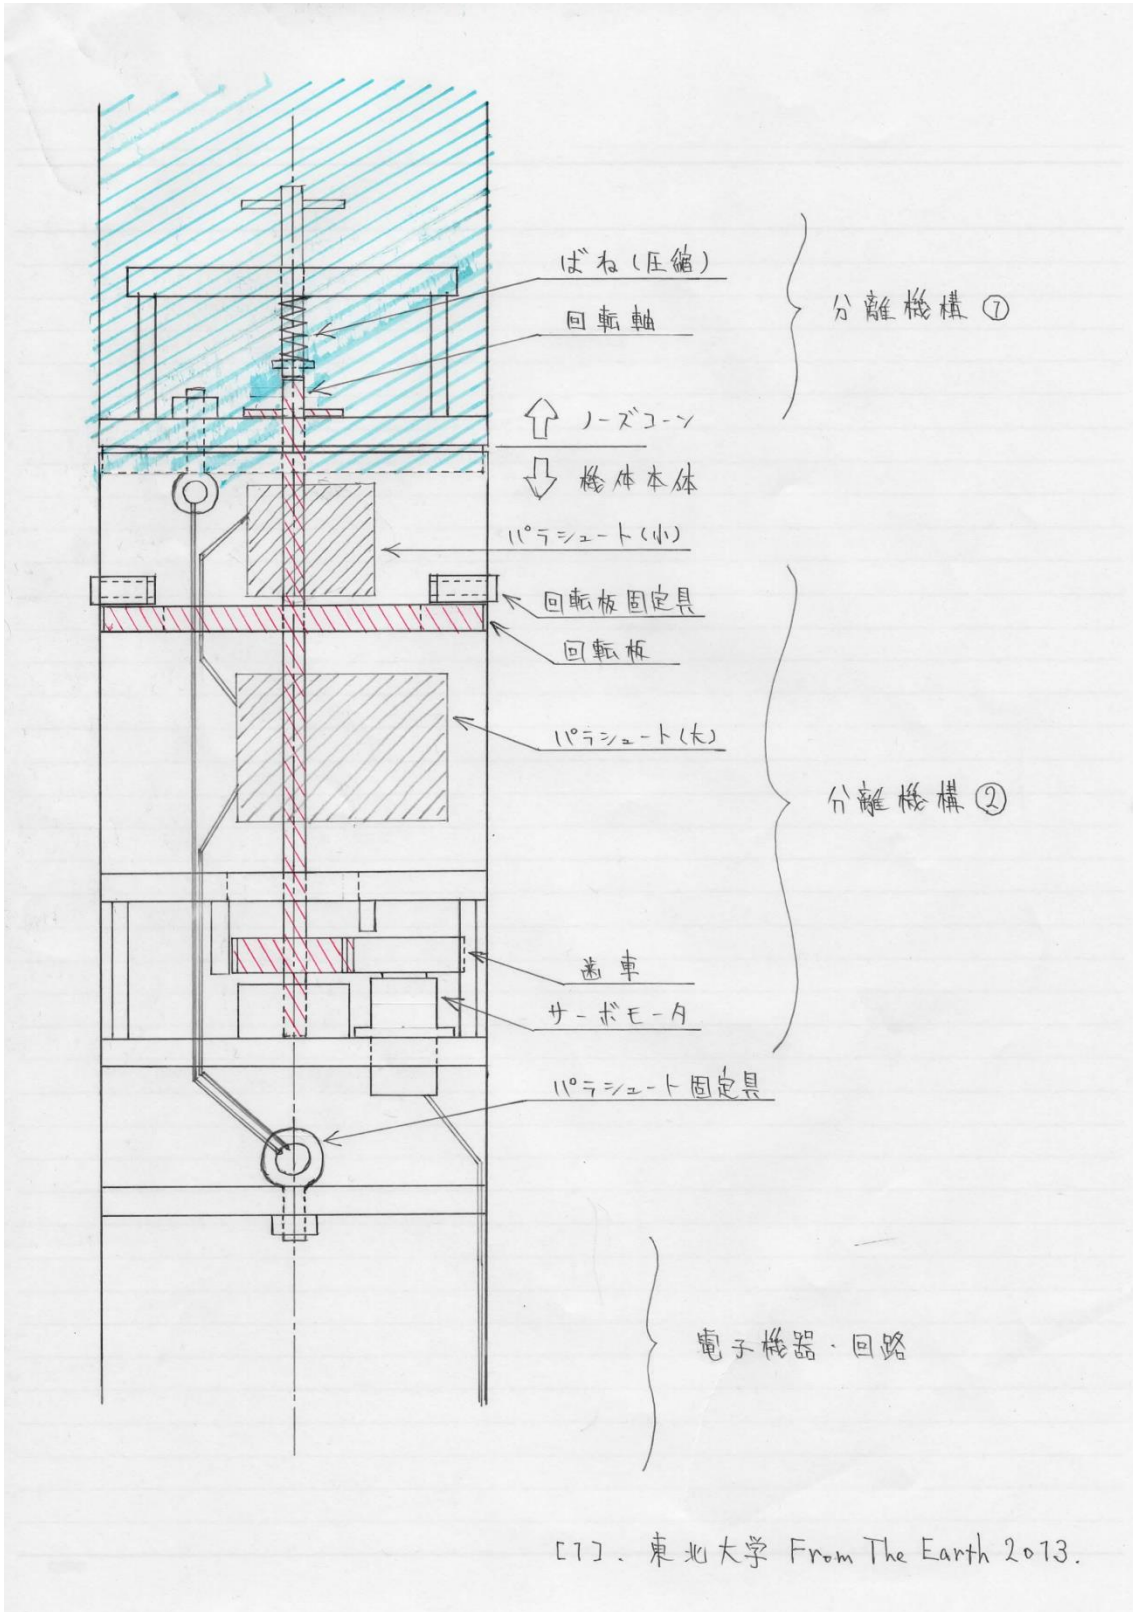 ばね(圧縮)
回転軸
分離機構①
ノーズコーン
機体本体
パラシュート(小)
回転板固定具
回転板
パラシュート(大)
分離機構②
歯車
サーボモータ
パラシュート固定具
電子機器・回路
[1]. 東北大学 From The Earth 2013.